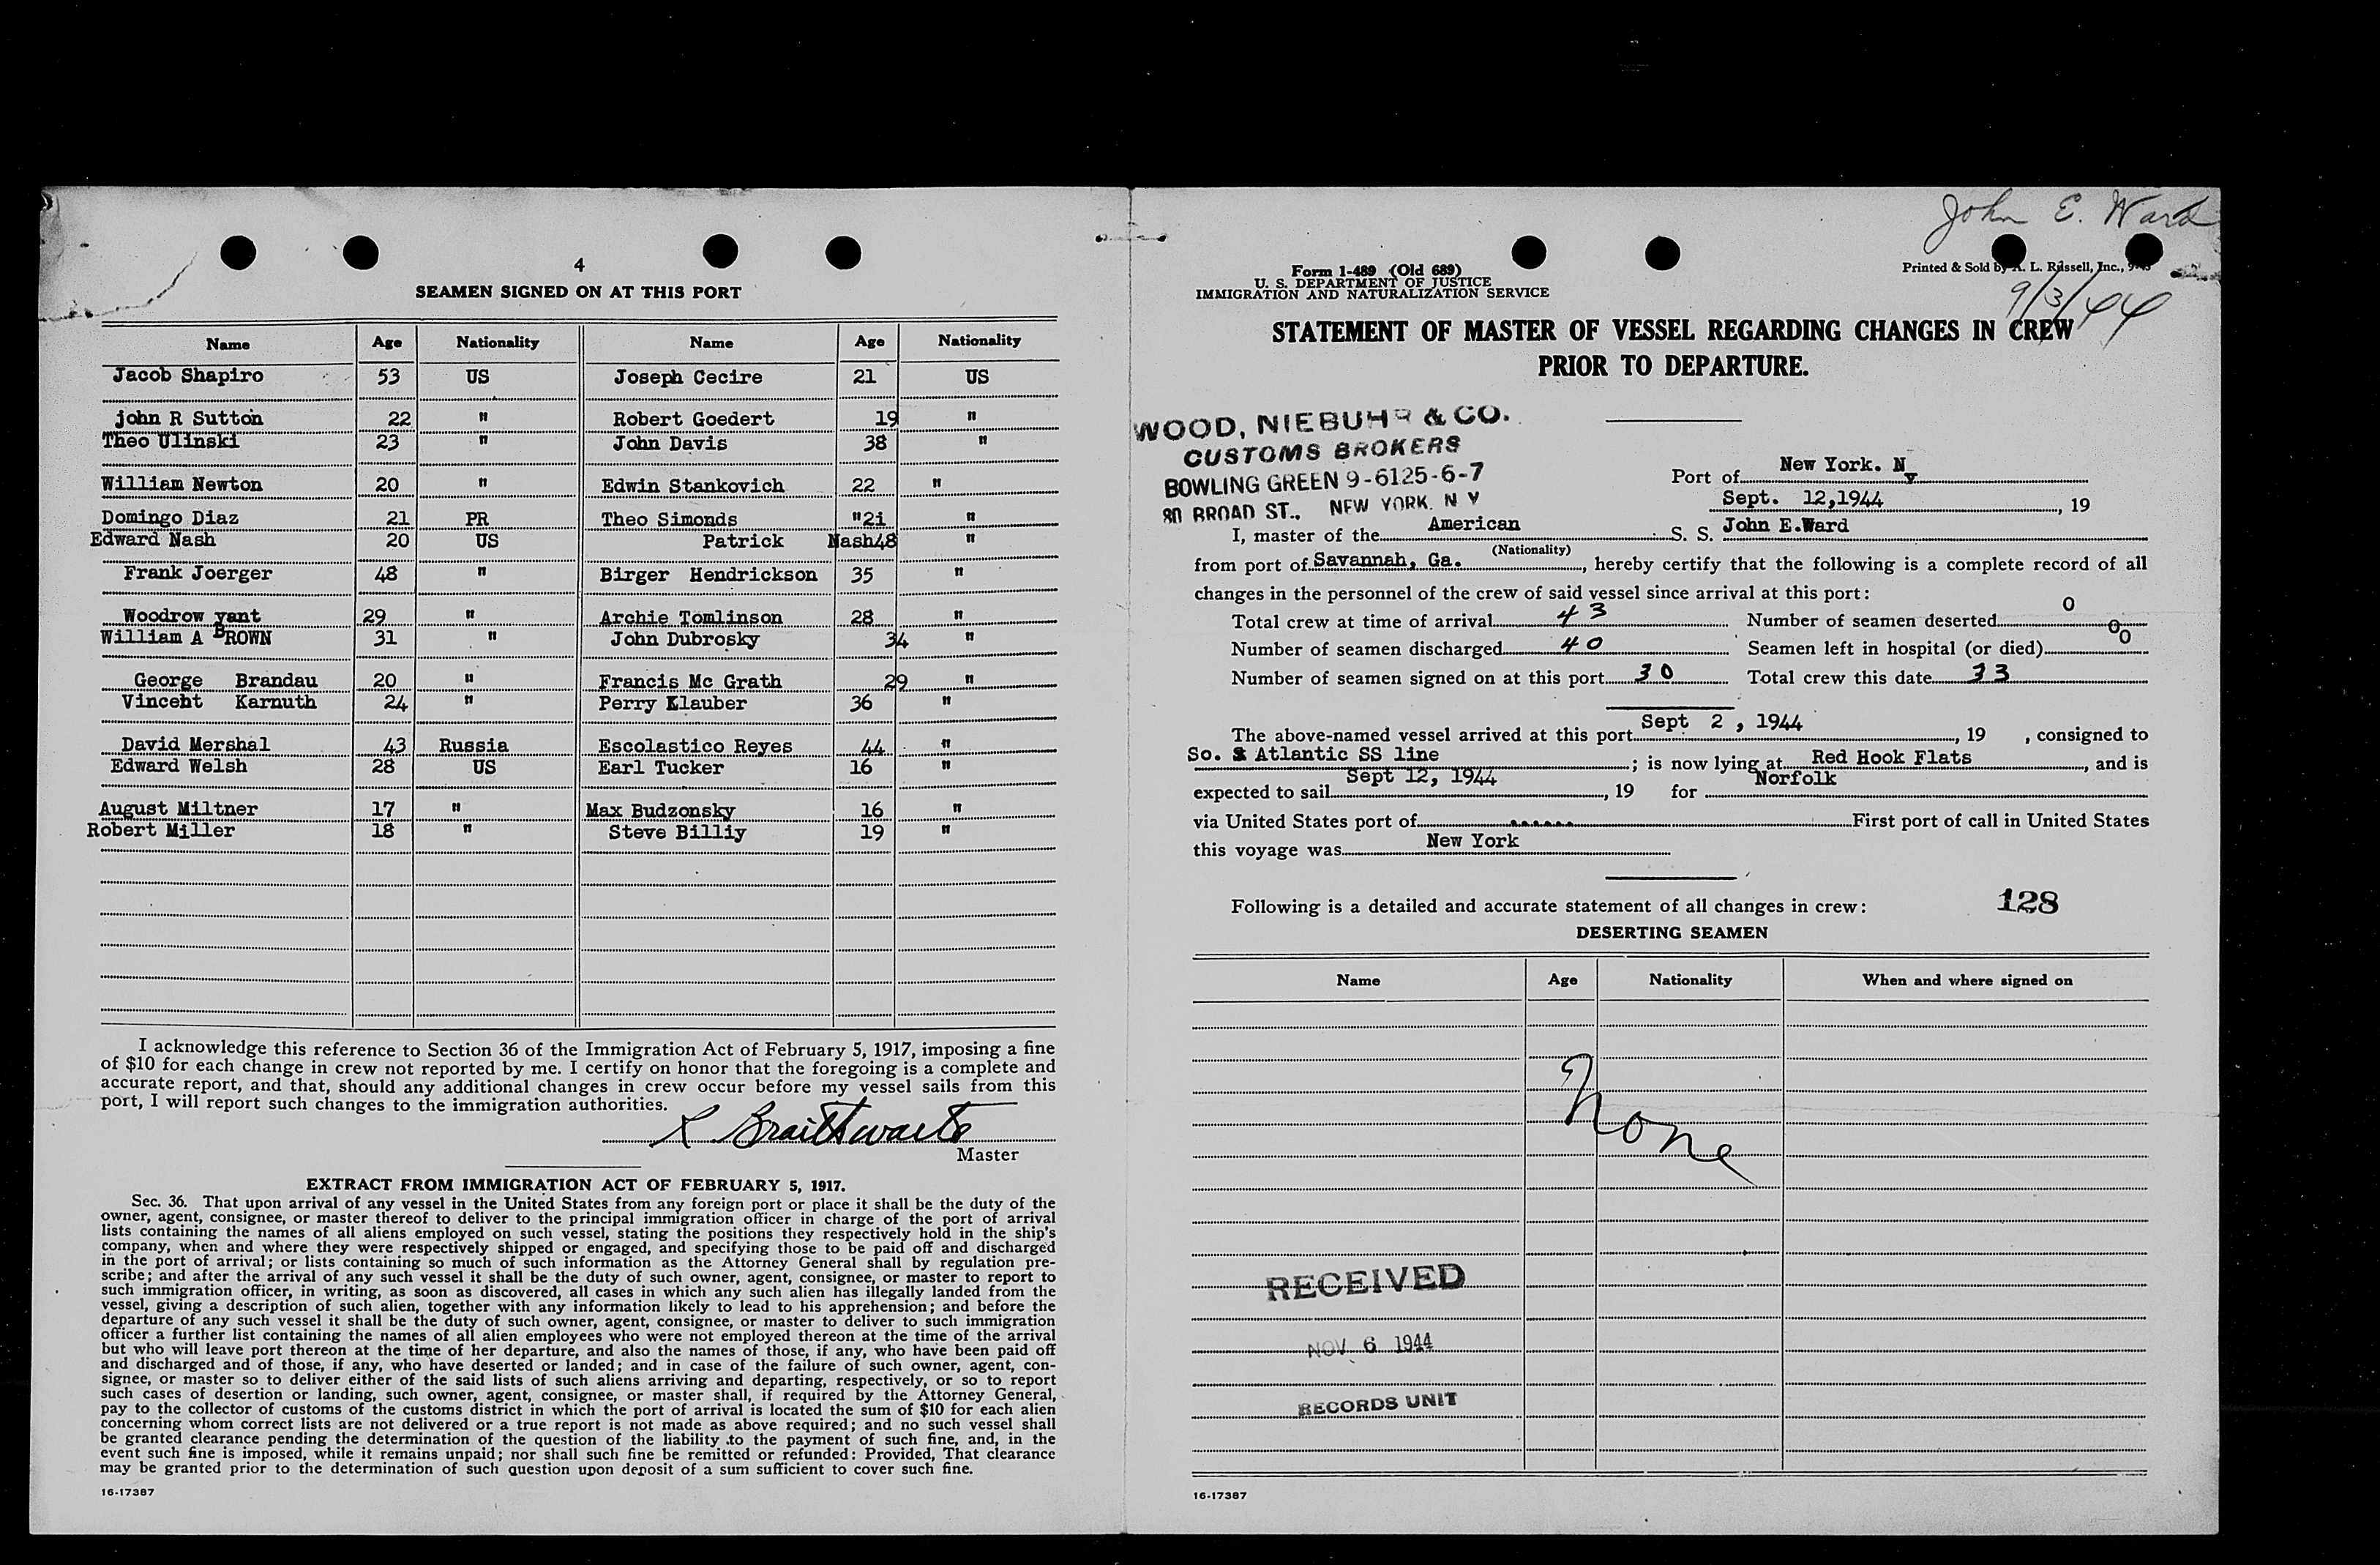 4
SEAMEN SIGNED ON AT THIS PORT
Name Age Nationality Name Age Nationality
Jacob Shapiro 53 US Joseph Cecire 21 US
john R Sutton 22 " Robert Goedert 19 "
Theo Ulinski 23 " John Davis 38 "
William Newton 20 " Edwin Stankovich 22 "
Domingo Diaz 21 PR Theo Simonds "21 "
Edward Nash 20 US Patrick Nash48 "
Frank Joerger 48 " Birger Hendrickson 35 "
Woodrow yant 29 " Archie Tomlinson 28 "
William A BROWN 31 " John Dubrosky 34 "
George Brandau 20 " Francis Mc Grath 29 "
Vincent Karnuth 24 " Perry Klauber 36 "
David Mershal 43 Russia Escolastico Reyes 44 "
Edward Welsh 28 US Earl Tucker 16 "
August Miltner 17 " Max Budzonsky 16 "
Robert Miller 18 " Steve Billiy 19 "
I acknowledge this reference to Section 36 of the Immigration Act of February 5, 1917, imposing a fine
of $10 for each change in crew not reported by me. I certify on honor that the foregoing is a complete and
accurate report, and that, should any additional changes in crew occur before my vessel sails from this
port, I will report such changes to the immigration authorities.
R Braithwaite
Master
EXTRACT FROM IMMIGRATION ACT OF FEBRUARY 5, 1917.
Sec. 36. That upon arrival of any vessel in the United States from any foreign port or place it shall be the duty of the
owner, agent, consignee, or master thereof to deliver to the principal immigration officer in charge of the port of arrival
lists containing the names of all aliens employed on such vessel, stating the positions they respectively hold in the ship's
company, when and where they were respectively shipped or engaged, and specifying those to be paid off and discharged
in the port of arrival; or lists containing so much of such information as the Attorney General shall by regulation pre-
scribe; and after the arrival of any such vessel it shall be the duty of such owner, agent, consignee, or master to report to
such immigration officer, in writing, as soon as discovered, all cases in which any such alien has illegally landed from the
vessel, giving a description of such alien, together with any information likely to lead to his apprehension; and before the
departure of any such vessel it shall be the duty of such owner, agent, consignee, or master to deliver to such immigration
officer a further list containing the names of all alien employees who were not employed thereon at the time of the arrival
but who will leave port thereon at the time of her departure, and also the names of those, if any, who have been paid off
and discharged and of those, if any, who have deserted or landed; and in case of the failure of such owner, agent, con-
signee, or master so to deliver either of the said lists of such aliens arriving and departing, respectively, or so to report
such cases of desertion or landing, such owner, agent, consignee, or master shall, if required by the Attorney General,
pay to the collector of customs of the customs district in which the port of arrival is located the sum of $10 for each alien
concerning whom correct lists are not delivered or a true report is not made as above required; and no such vessel shall
be granted clearance pending the determination of the question of the liability to the payment of such fine, and, in the
event such fine is imposed, while it remains unpaid; nor shall such fine be remitted or refunded: Provided, That clearance
may be granted prior to the determination of such question upon deposit of a sum sufficient to cover such fine.
16-17387
John E. Ward
Form 1-489 (Old 689)
U. S. DEPARTMENT OF JUSTICE
IMMIGRATION AND NATURALIZATION SERVICE
Printed & Sold by A. L. Russell, Inc.,
9/3/44
STATEMENT OF MASTER OF VESSEL REGARDING CHANGES IN CREW
PRIOR TO DEPARTURE.
WOOD, NIEBUHR & CO.
CUSTOMS BROKERS
BOWLING GREEN 9-6125-6-7
80 BROAD ST., NEW YORK. N Y
Port of New York. N Y
Sept. 12,1944, 19
I, master of the American S. S. John E.Ward
(Nationality)
from port of Savannah, Ga., hereby certify that the following is a complete record of all
changes in the personnel of the crew of said vessel since arrival at this port:
Total crew at time of arrival 43 Number of seamen deserted 0
Number of seamen discharged 40 Seamen left in hospital (or died) 00
Number of seamen signed on at this port 30 Total crew this date 33
The above-named vessel arrived at this port Sept 2 , 1944, 19 , consigned to
So. & Atlantic SS line; is now lying at Red Hook Flats, and is
expected to sail Sept 12, 1944, 19 for Norfolk
via United States port of ...... First port of call in United States
this voyage was New York
Following is a detailed and accurate statement of all changes in crew: 128
DESERTING SEAMEN
Name Age Nationality When and where signed on
None
RECEIVED
NOV 6 1944
RECORDS UNIT
16-17387